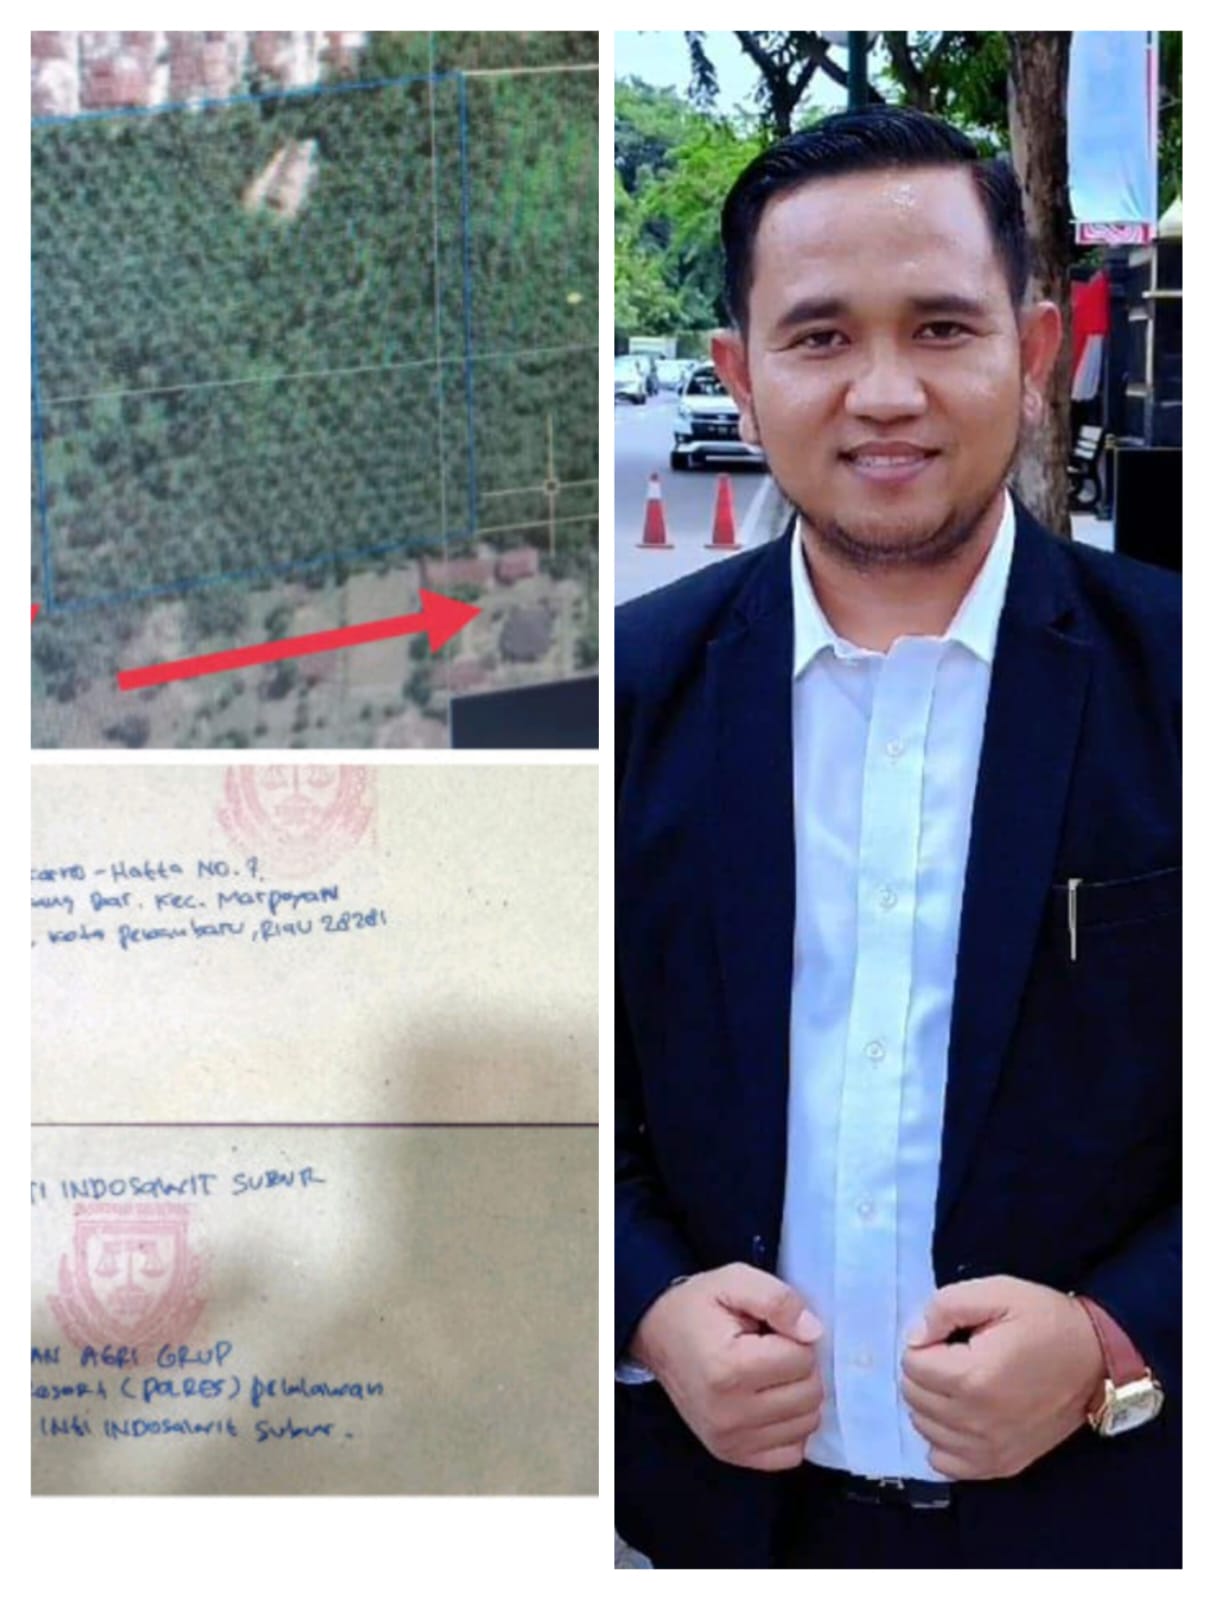 karno - Hatta NO. 7,
Bar. Kec. Marpoyan
, Kota pekanbaru, RIAU 28281
TI INDOSawIT SUBUR
AN AGRI GRUP
esort (POLRES) pelalawan
INti INDOSawit Subur.